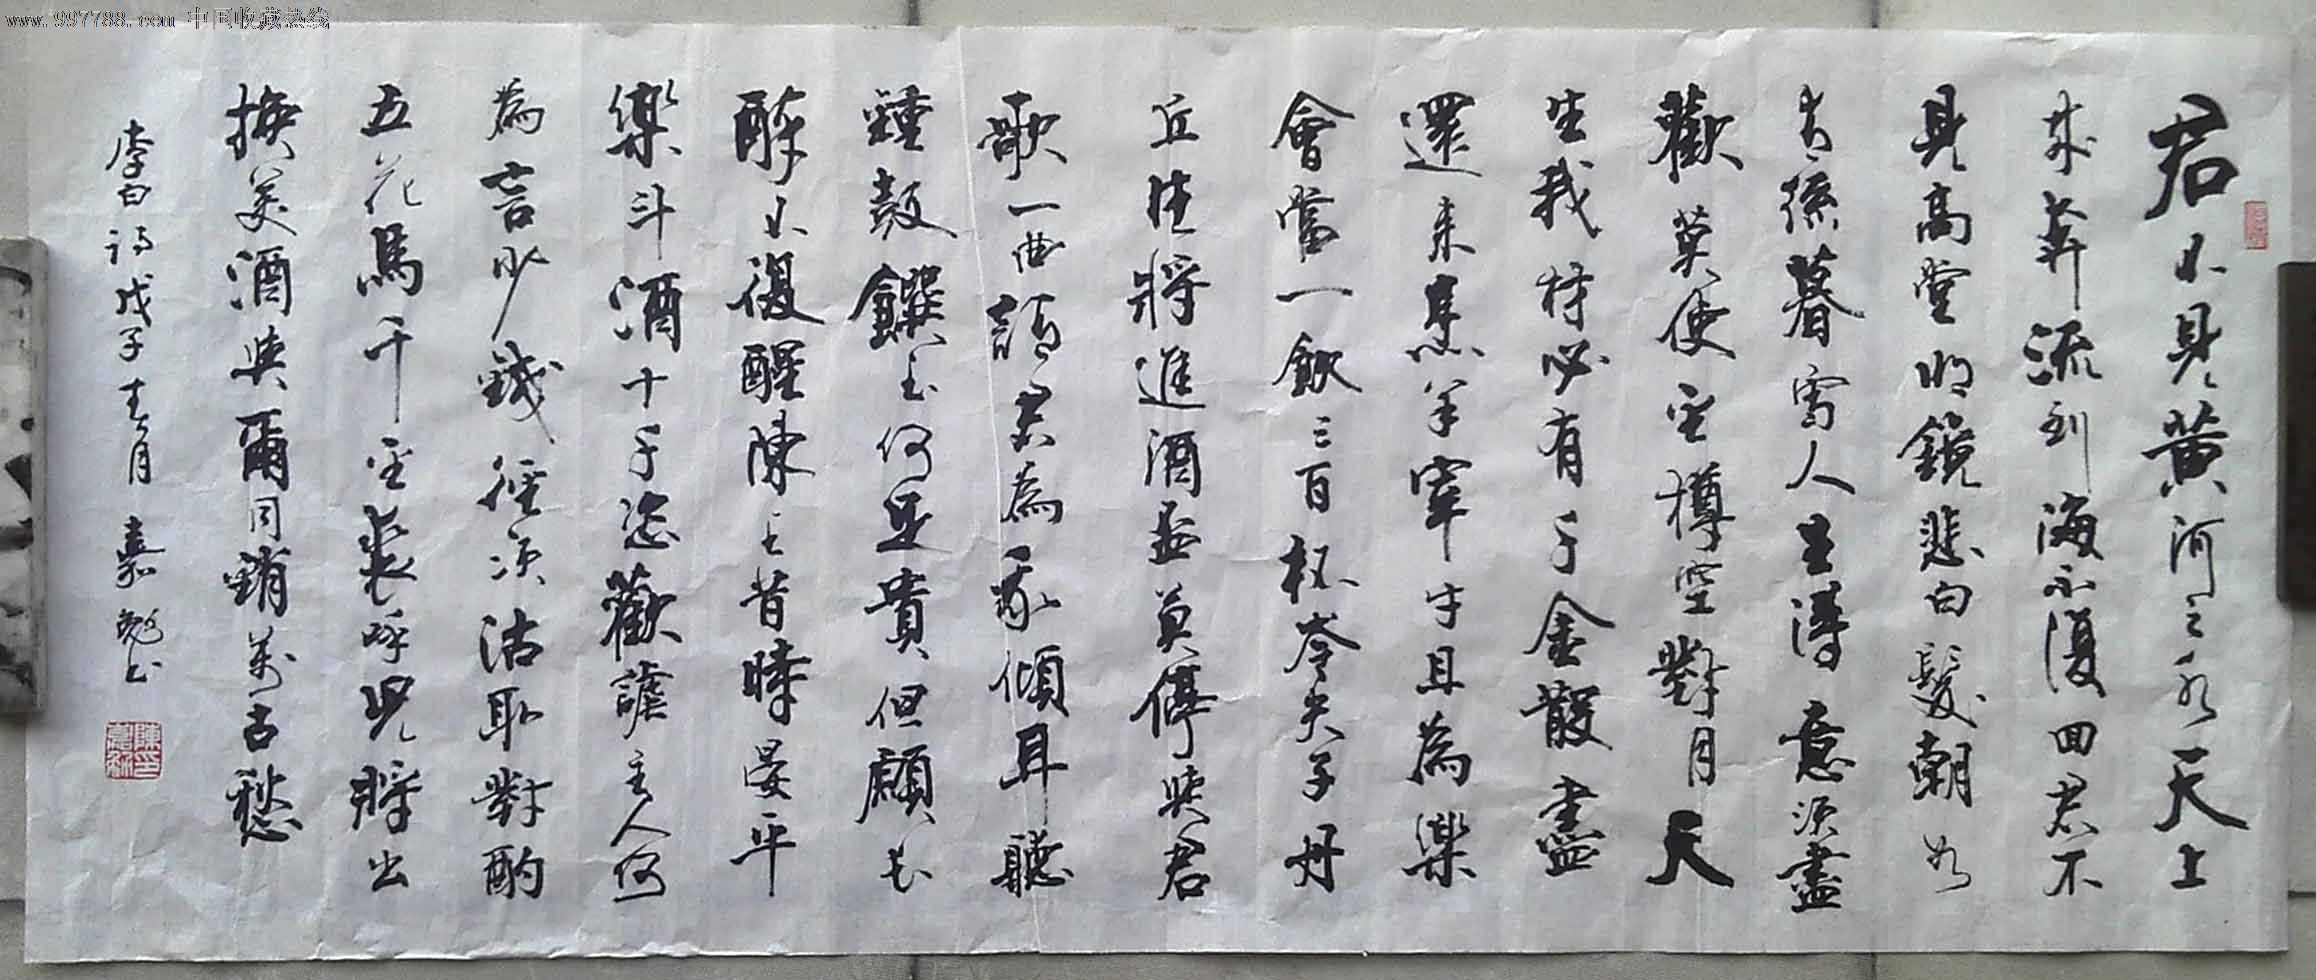 www.997788.com 中国收藏热线
君不見黃河之水天上
來奔流到海不復回君不
見高堂明鏡悲白髮朝如
青絲暮雪人生得意須盡
歡莫使金樽空對月天
生我材必有千金散盡
還來烹羊宰牛且為樂
會當一飲三百杯岑夫子丹
丘生將進酒杯莫停與君
歌一曲請君為我傾耳聽
鐘鼓饌玉何足貴但願長
醉不復醒陳王昔時宴平
樂斗酒十千恣歡謔主人何
為言少錢徑須沽取對酌
五花馬千金裘呼兒將出
換美酒與爾同銷萬古愁
李白詩戊子青月 嘉 書